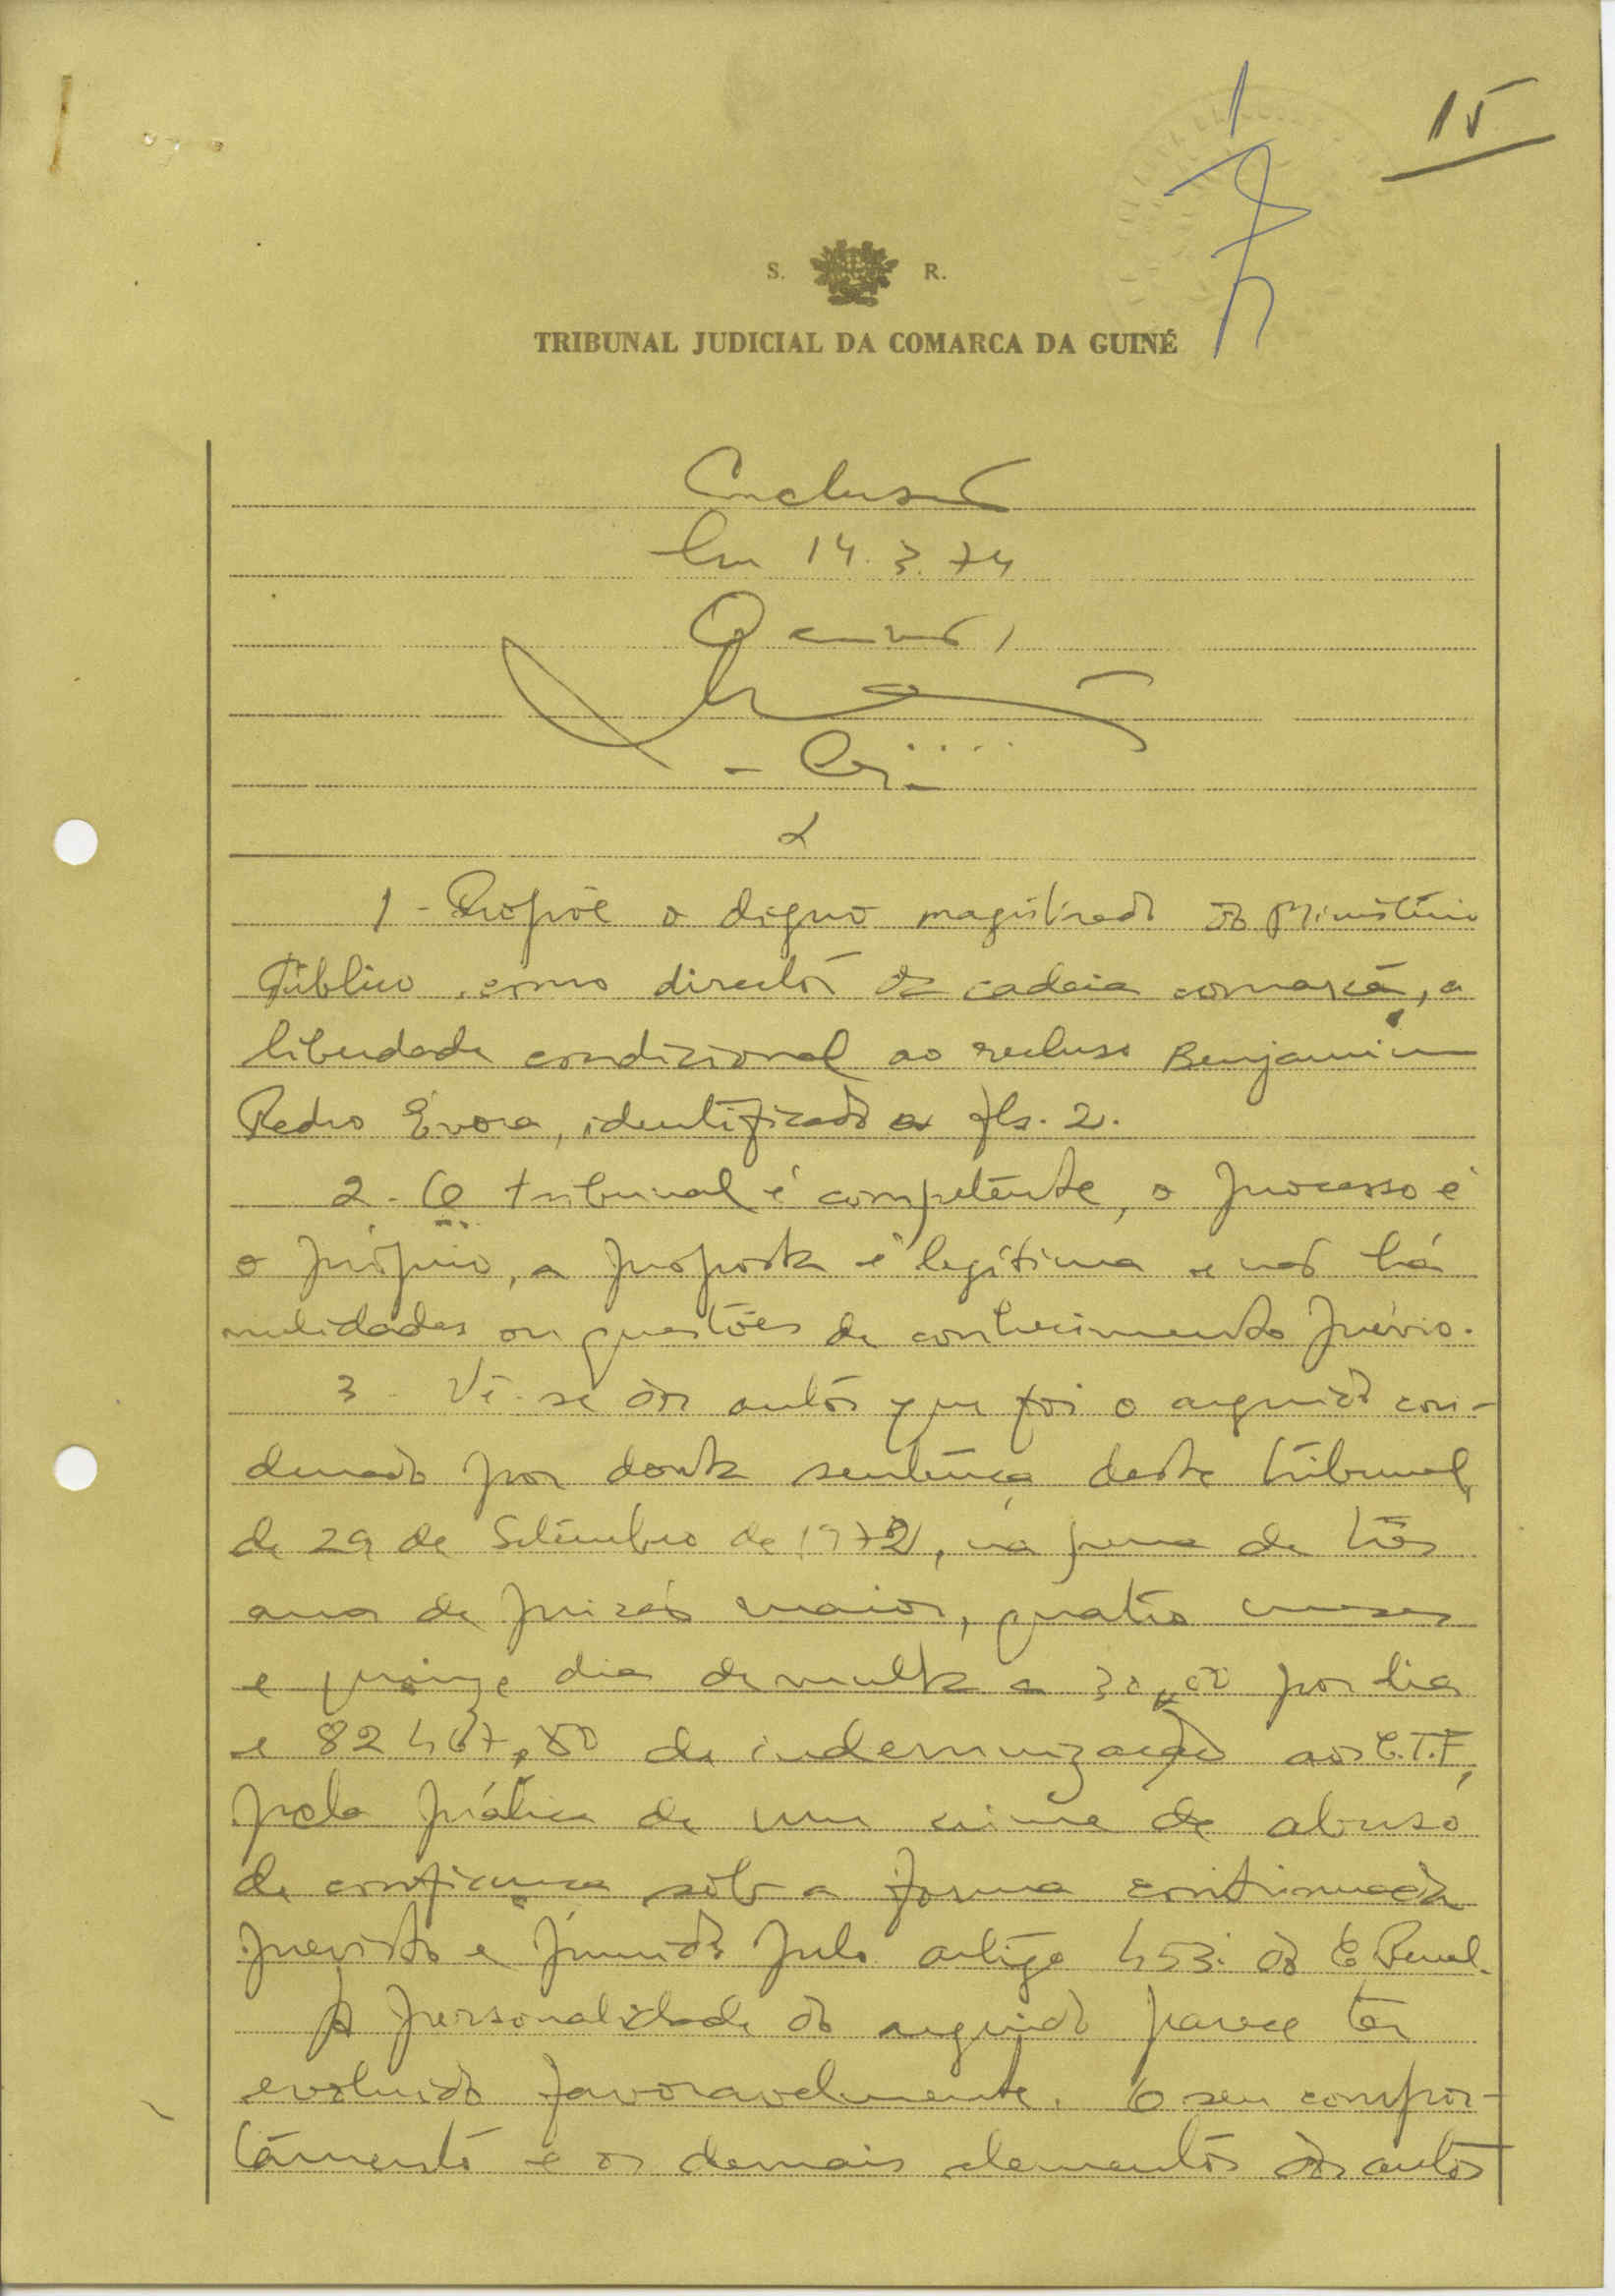 15
S. R.
TRIBUNAL JUDICIAL DA COMARCA DA GUINÉ
Conclusão
Em 14.3.74
O escrivão,
1 - Propõe o digno magistrado do Ministério
Público, como director da cadeia comarcã, a
liberdade condicional ao recluso Benjamim
Pedro Évora, identificado a fls. 2.
2 - O tribunal é competente, o processo é
o próprio, a proposta é legítima e não há
nulidades ou questões de conhecimento prévio.
3 - Vê-se dos autos que foi o arguido con-
denado por douta sentença deste tribunal,
de 29 de Setembro de 1972, na pena de três
anos de prisão maior, quatro meses
e quinze dias de multa a 30,00 por dia
e 82 467,80 de indemnização aos C.T.F,
pela prática de um crime de abuso
de confiança sob a forma continuada
previsto e punido pelo artigo 453. do C. Penal.
A personalidade do arguido parece ter
evoluido favoravelmente. O seu compor-
tamento e os demais elementos dos autos